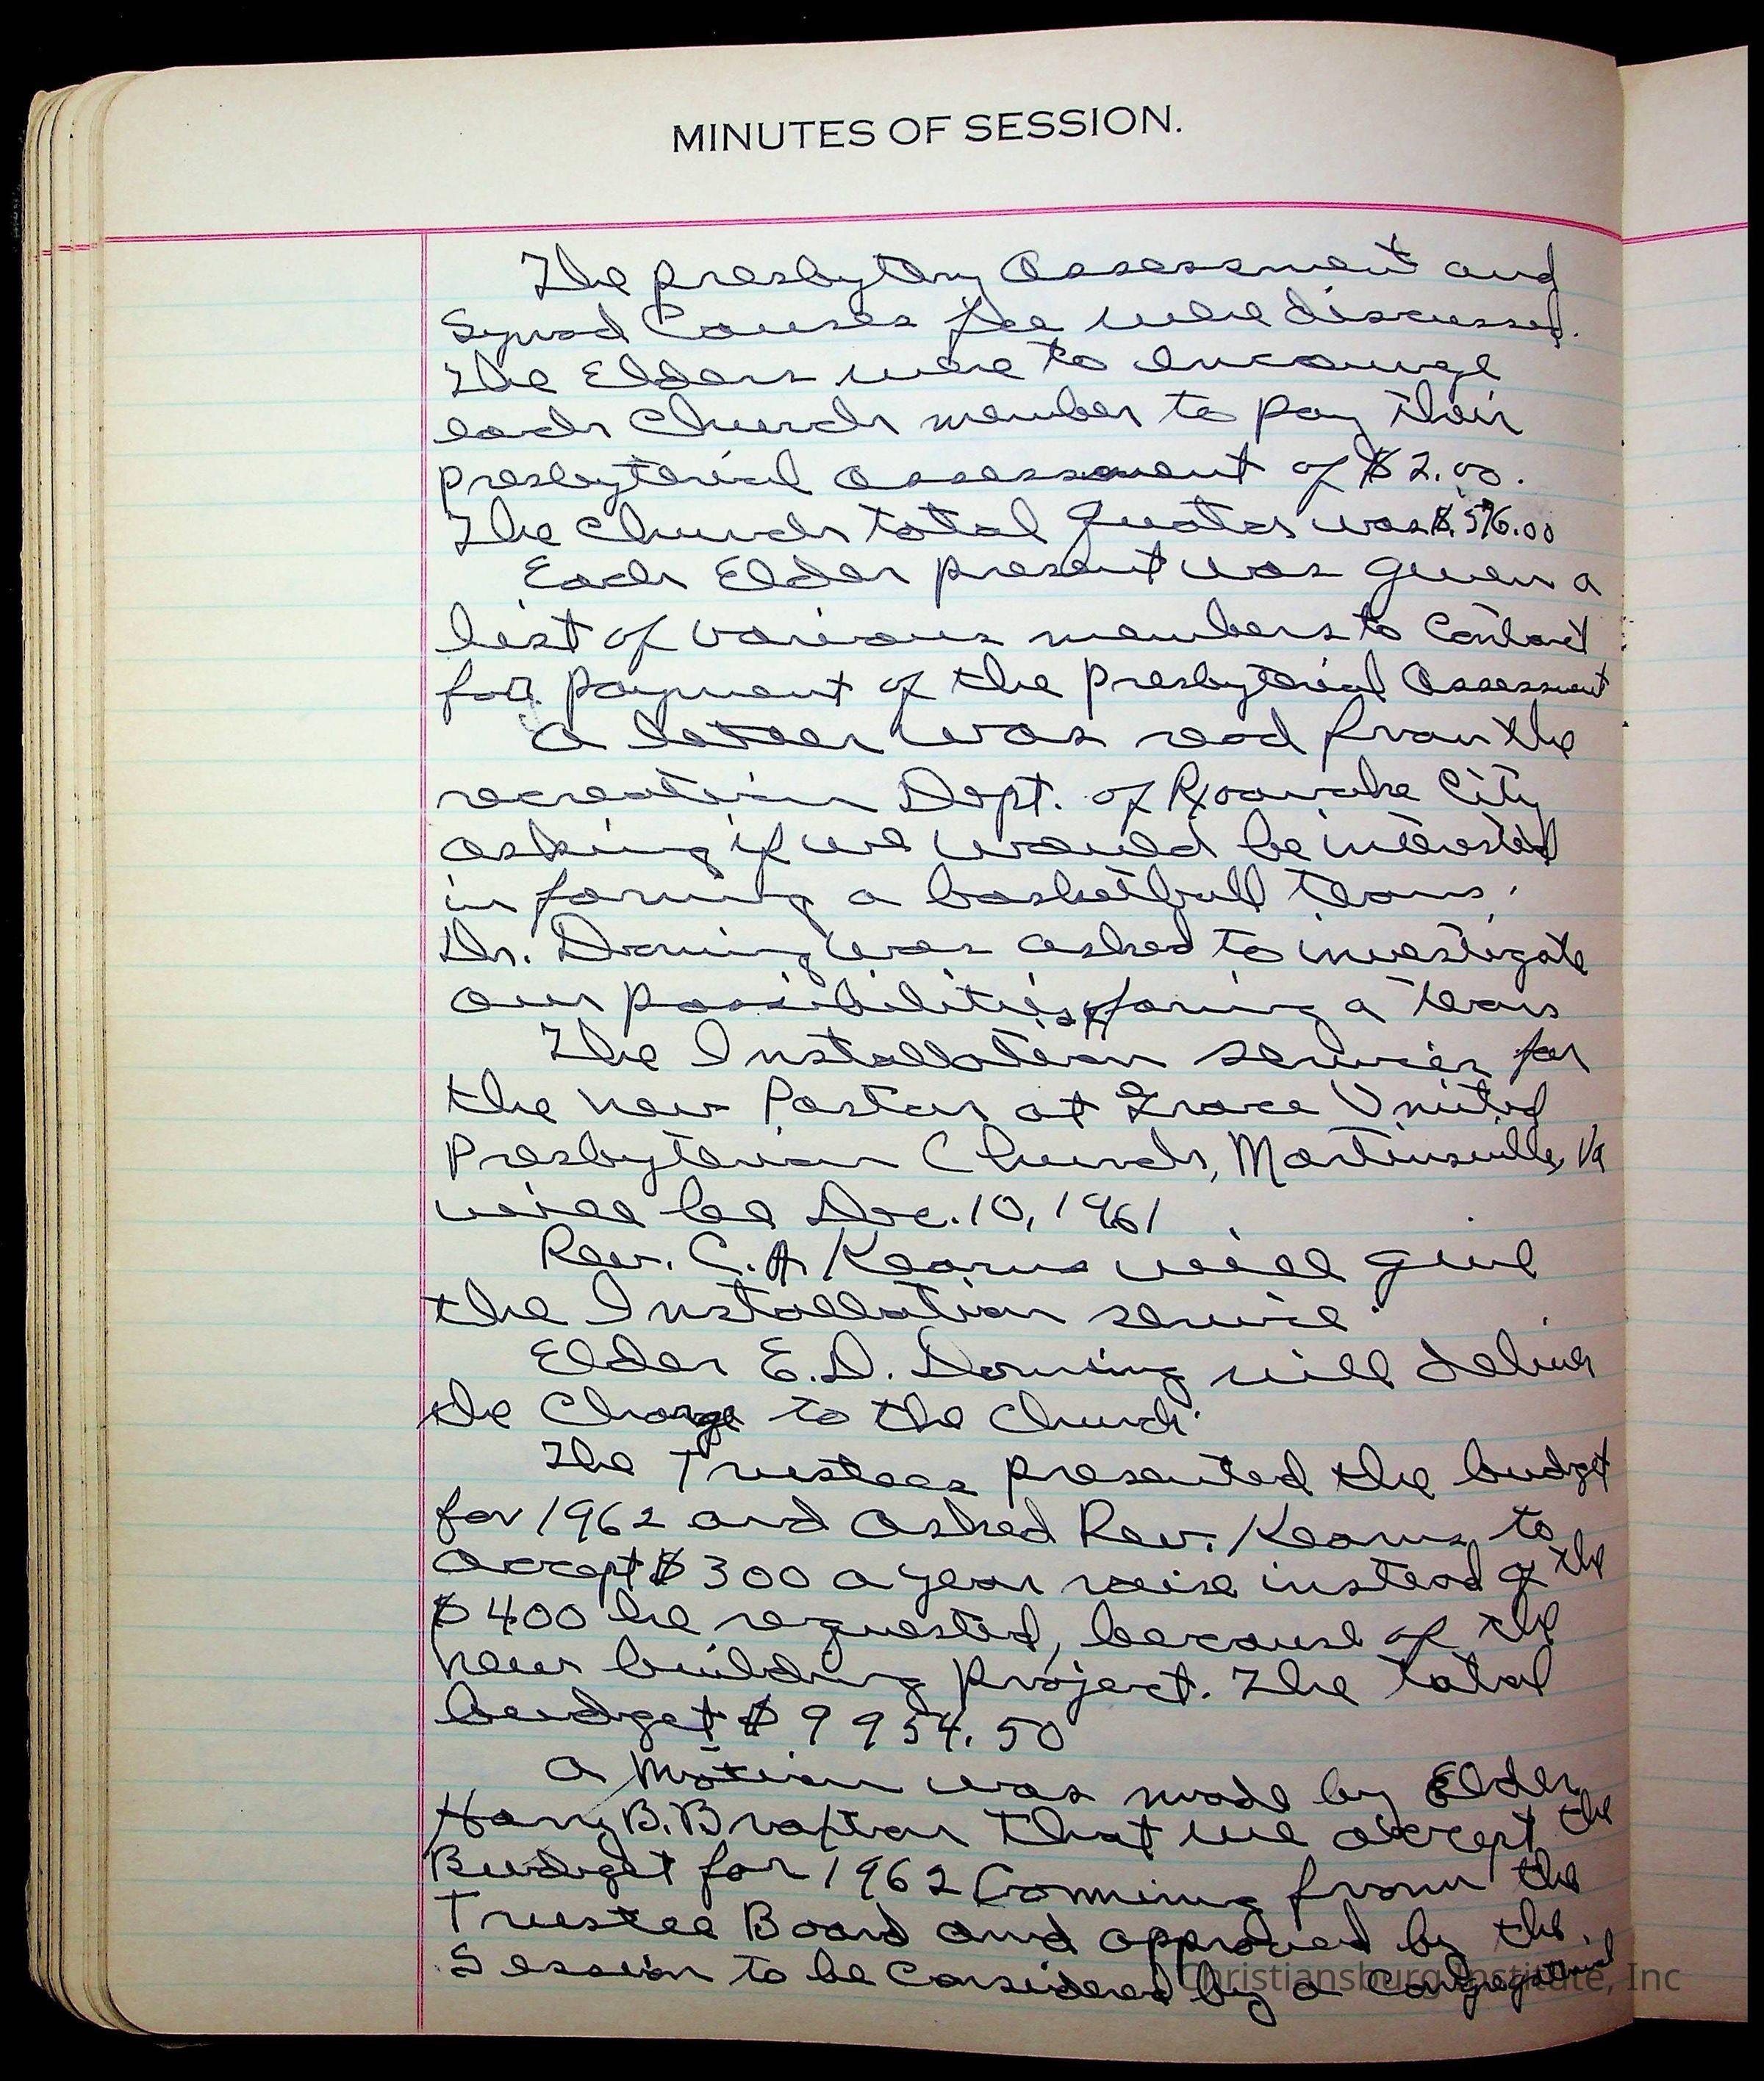 MINUTES OF SESSION.
The presbytery Assessment and
Synod Causes fee were discussed.
The Elders were to encourge
each Church member to pay their
presbyterial assessment of $2.00.
The Church total quotas was $.
Each Elder present was given a
list of various members to Contact
for payment of the presbyterial Assessment
A letter was read from the
recreation Dept. of Roanoke City
asking if we would be interested
in forming a basketball team.
Dr. Downing was asked to investigate
our possibilities of forming a team
The Installation service for
the new Pastor at Grace United
Presbyterian Church, Martinsville, Va
will be Dec. 10, 1961
Rev. C. A Kearns will give
the Installation service
Elder E. D. Downing will deliver
the Charge to the Church
The Trustees presented the budget
for 1962 and asked Rev. Kearns to
accept $300 a year raise instead of the
$400 he requested, because of the
new building project. The total
budget $9954.50
A motion was made by Elder
Harry B. Braxton that we accept the
Budget for 1962 Comming from the
Trustee Board and approved by the
Session to be Considered by a Congregational
Christiansburg Institute, Inc